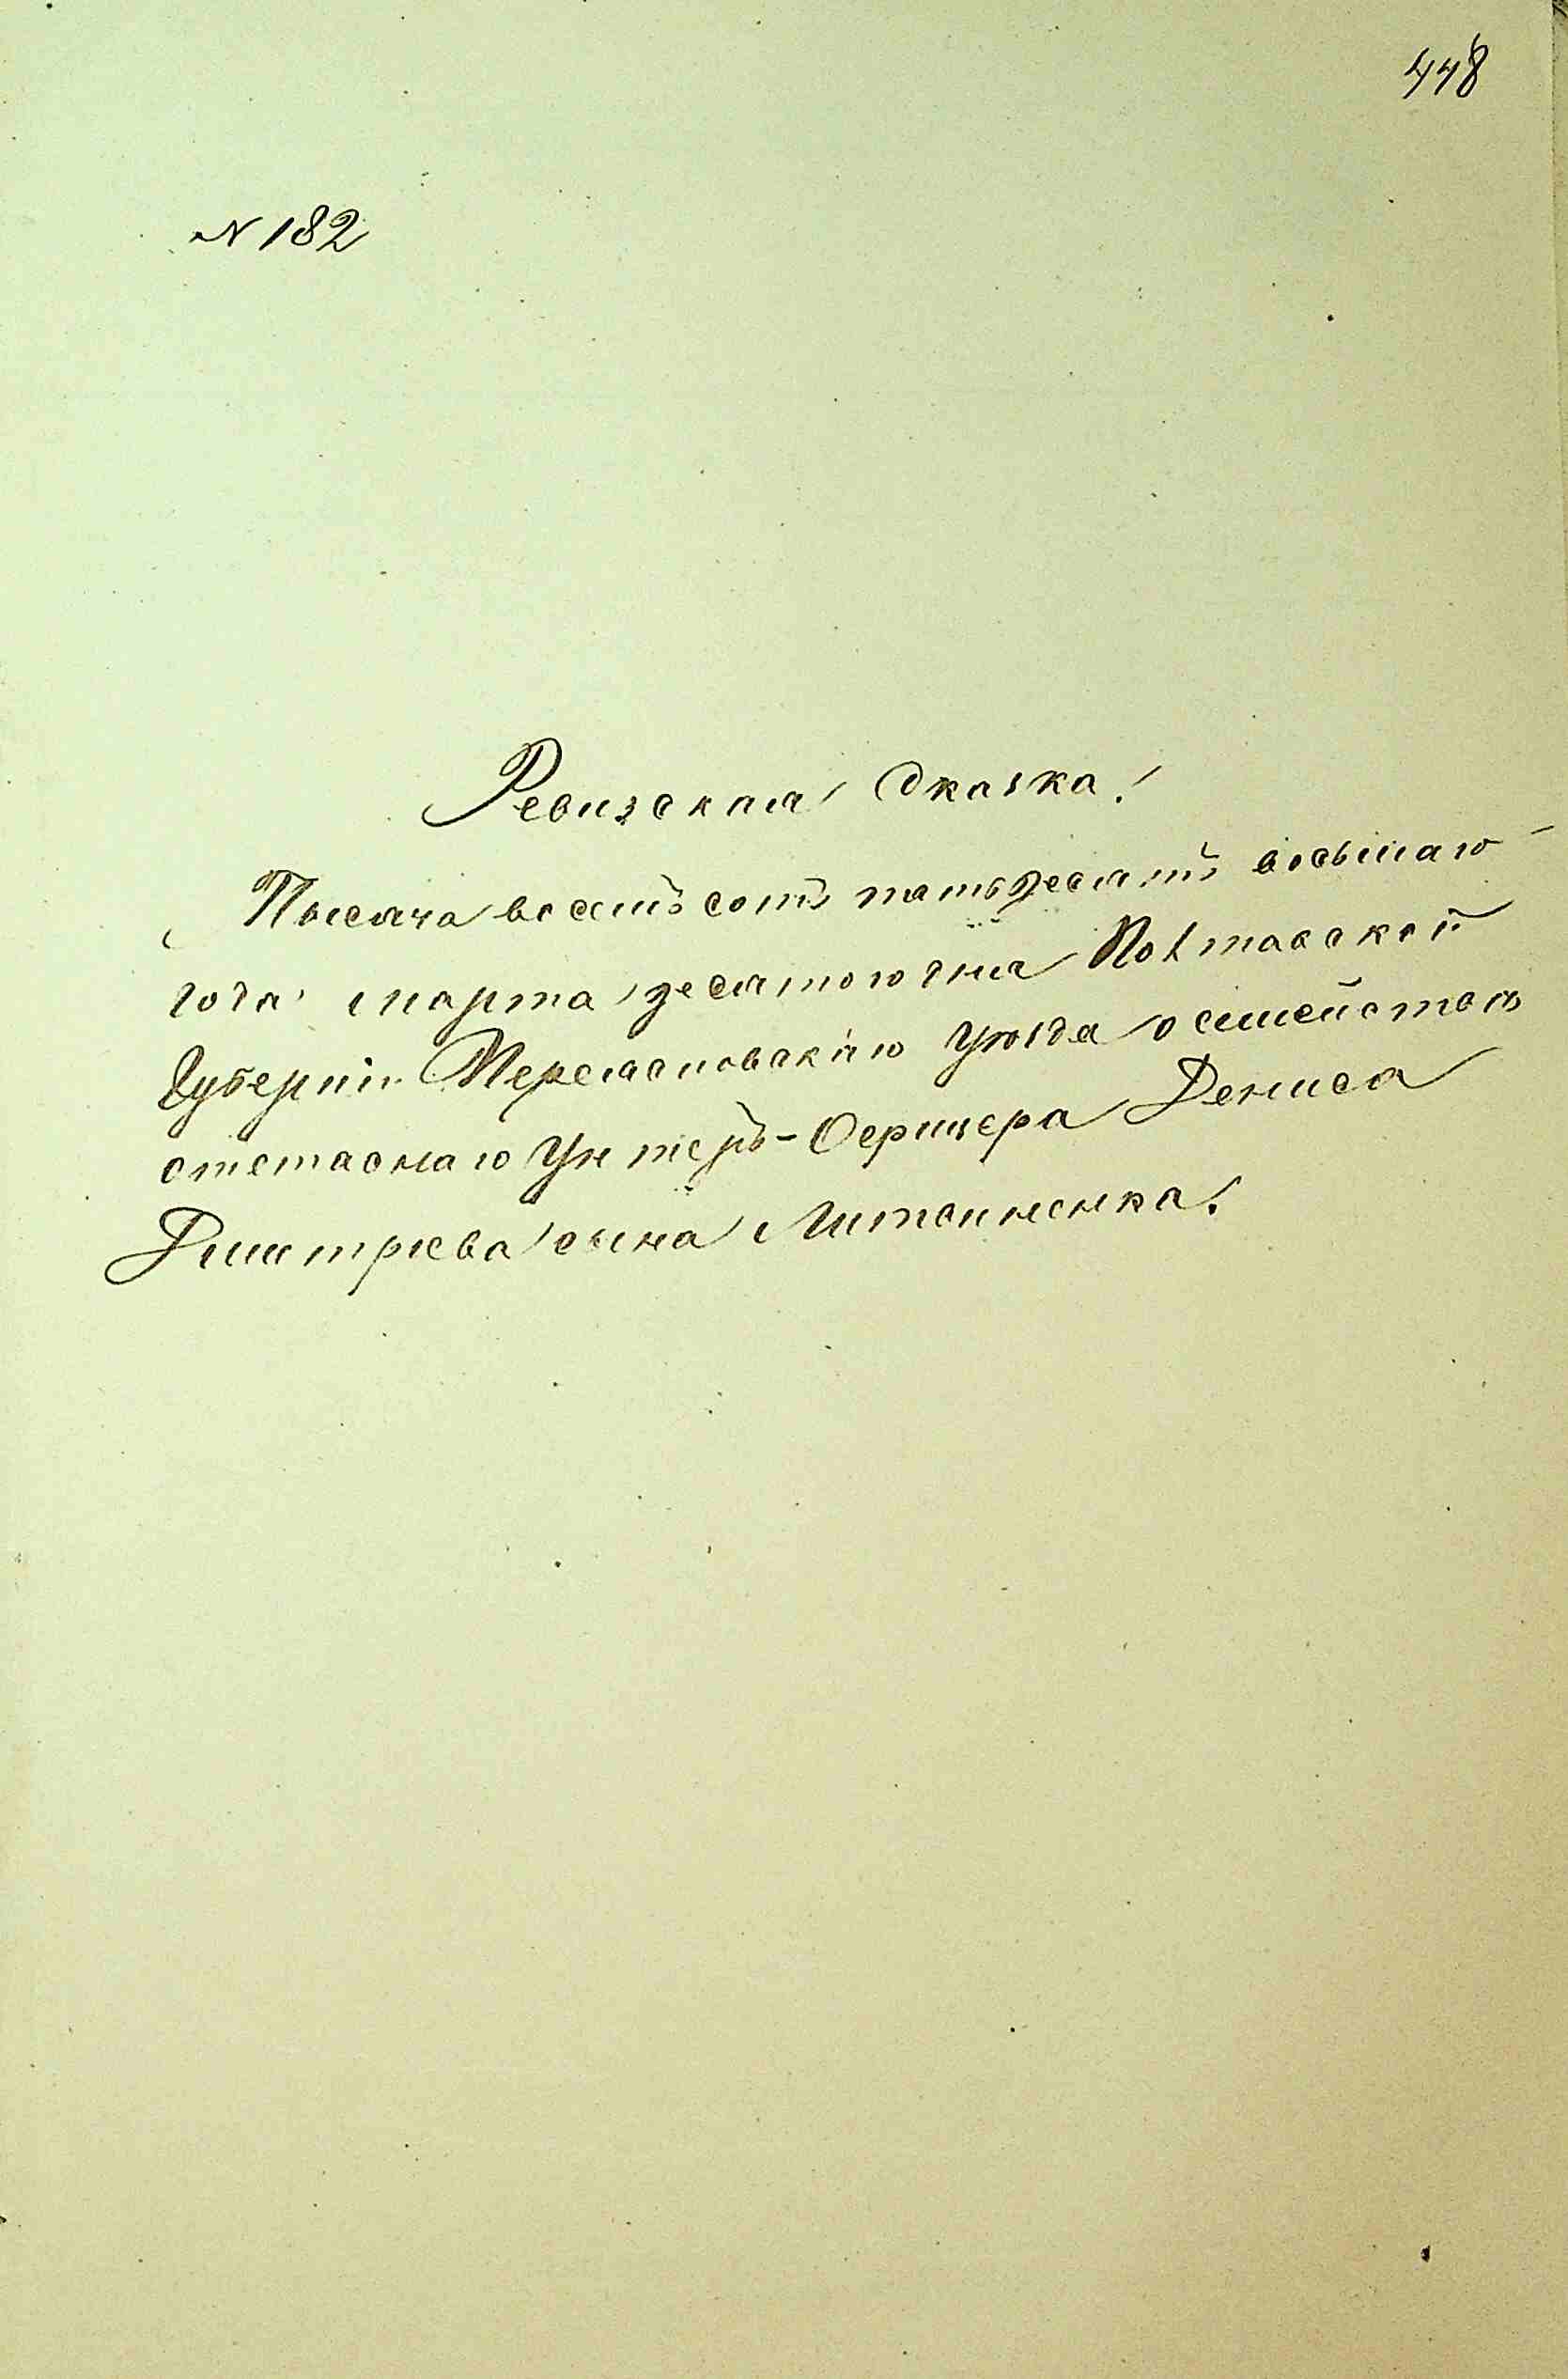 448
№ 182
Ревизская Сказка.
Тысяча восемъ сотъ пятьдесятъ восьмаго
года марта десятого дня Полтавской
Губернии Переяславскаго Уѣзда о семействѣ
отставнаго Унтеръ-Офицера Дениса
Дмитриева сына Литвиненка.